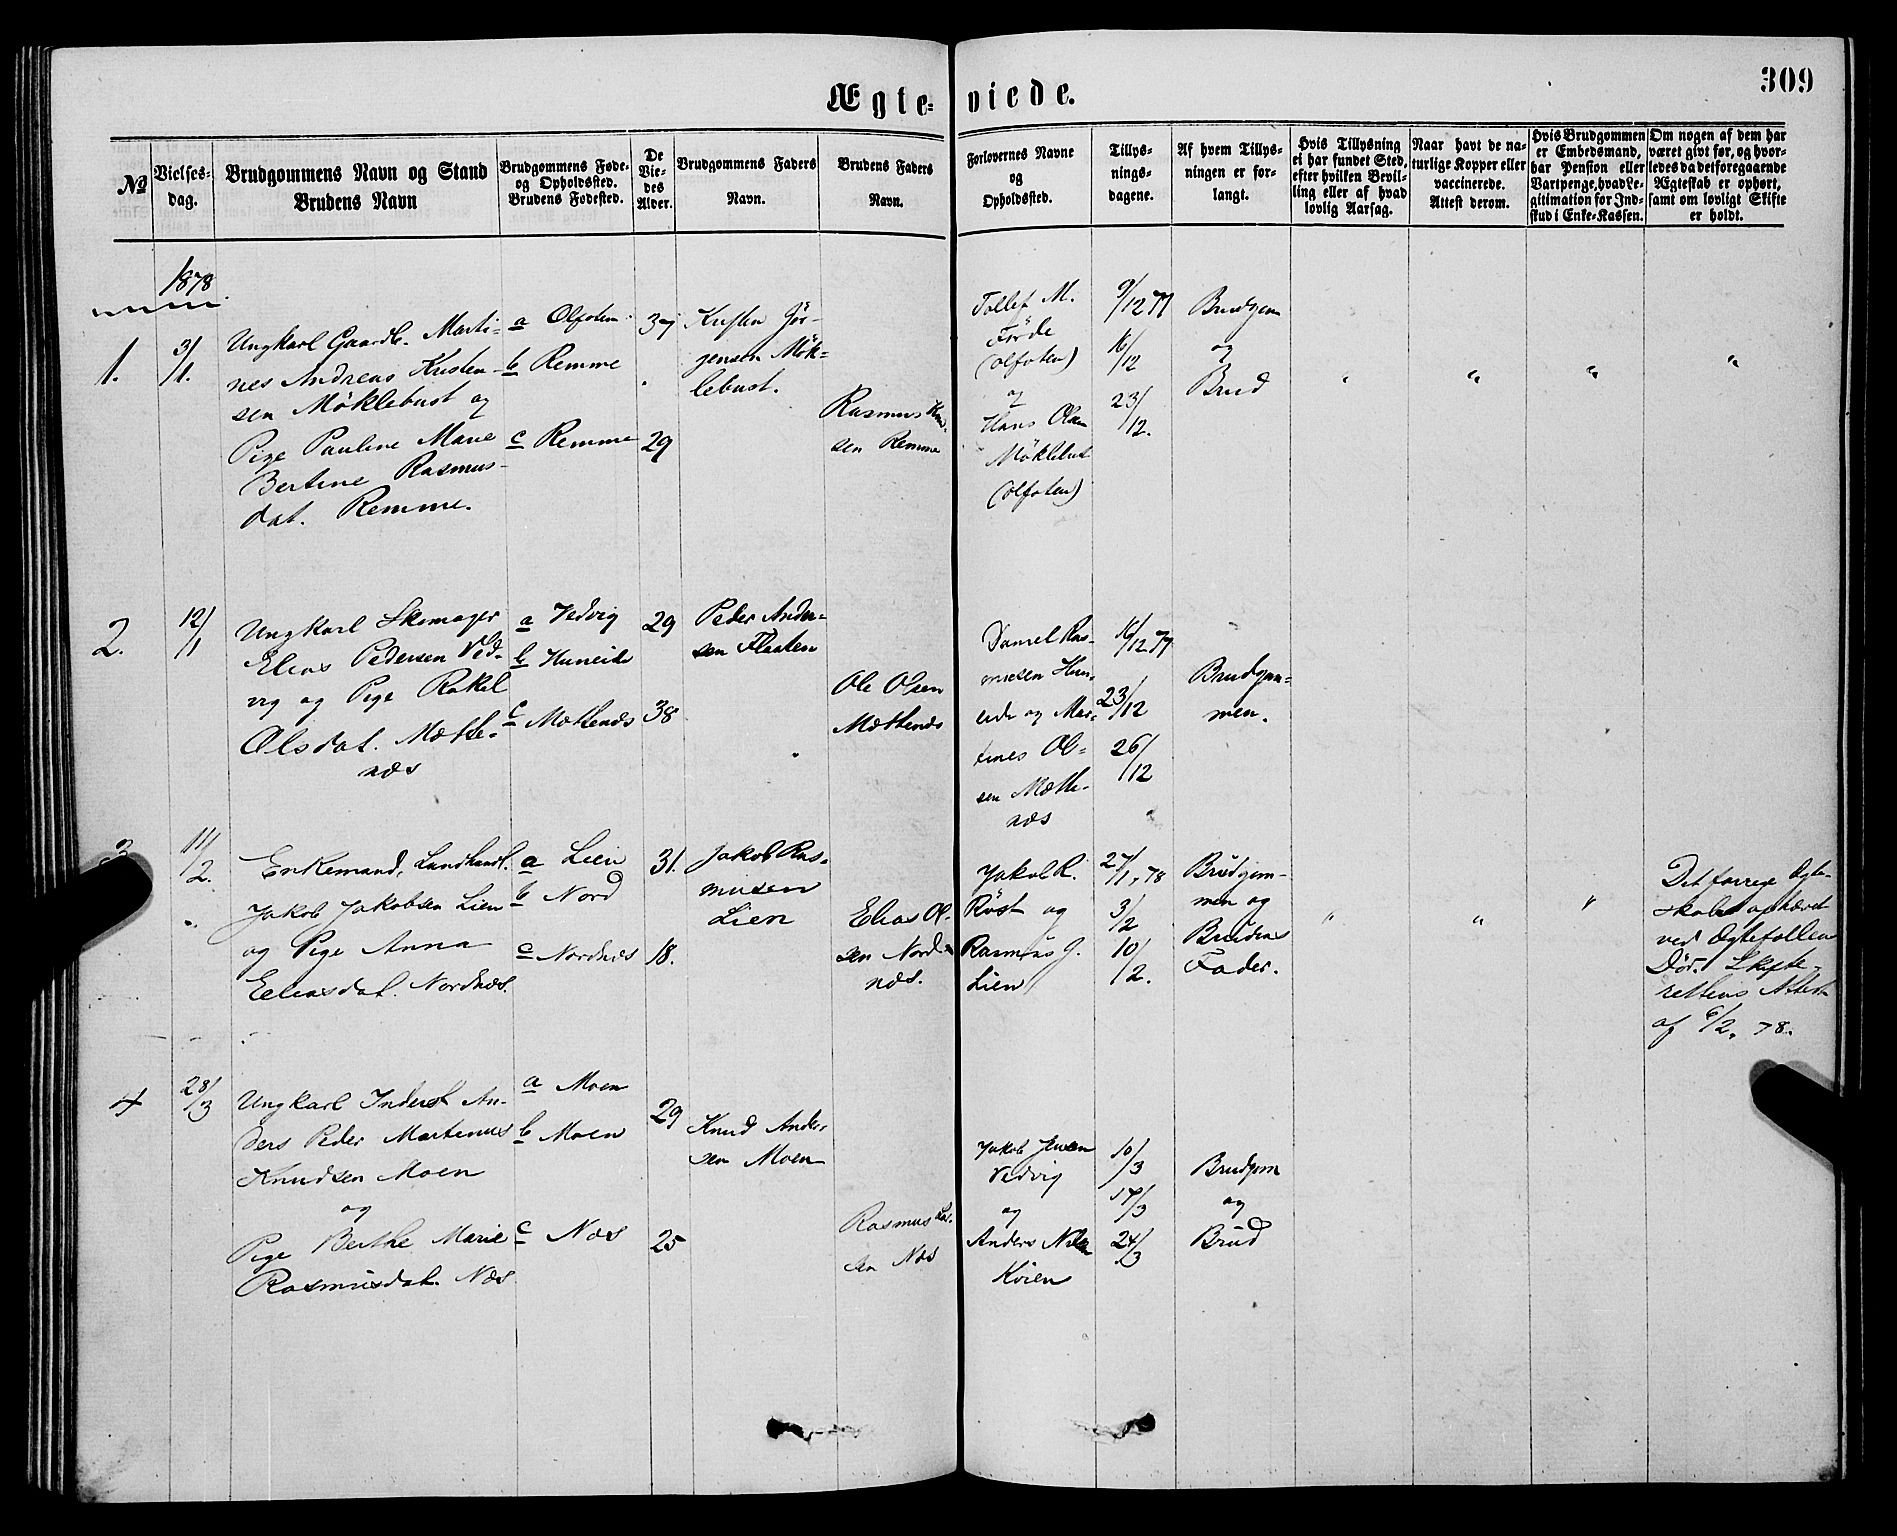 309
Ægte- viede.
№
Vielses-
dag.
Brudgommens Navn og Stand
Brudens Navn
Brudgommens Føde-
og Opholdssted.
Brudens Fødested.
De
Vie-
des
Alder.
Brudgommens Faders
Navn.
Brudens Faders
Navn.
Forlovernes Navne
og
Opholdssted.
Tillys-
nings-
dagene.
Af hvem Tillys-
ningen er for-
langt.
Hvis Tillysning
ei har fundet Sted,
efter hvilken Bevil-
ling eller af hvad
lovlig Aarsag.
Naar havt de na-
turlige Kopper eller
vaccinerede.
Attest derom.
Hvis Brudgommen
er Embedsmand,
har Pension eller
Vartpenge, hvad Le-
gitimation for Ind-
skud i Enke-Kassen.
Om nogen af dem har
været givt før, og hvor-
ledes da det foregaaende
Ægteskab er ophørt,
samt om lovligt Skifte
er holdt.
1878.
1.
3/1.
Ungkarl Gaardb. Marti-
nes Andreas Kristen-
sen Möklebust og
Pige Pauline Marie
Bertine Rasmus-
dat. Remme.
a Olfoten
b Remme
c Remme
29
Kristen Jör-
gensen Mök-
lebust.
Rasmus
sen Remme
Tollef M.
Förde
(Olfoten)
og
Hans Olsen
Möklebust
(Olfoten)
9/12 77
16/12
23/12.
Brudgom
og
Brud
" " " "
2.
12/1
Ungkarl Skomager
Elias Pedersen Ved-
vig og Pige Rakel
Olsdat. Mætte-
næs
a Vedvig
b Huneide
c Mættenæs
29
38
Peder Ander-
sen Flaaten
Ole Olsen
Mættenæs
Daniel Ras-
musen Hun-
eide og Mar-
tines Ol-
sen Mætte-
næs
16/12 77
23/12
26/12
Brudgom-
men.
3
11/2.
Enkemand, Landhandl.
Jakob Jakobsen Lien
og Pige Anna
Eliasdat. Nordnæs.
a Lien
b Nord
c Nordnæs
31.
18.
Jakob Ras-
musen
Lien
Elias Ol-
sen Nord-
næs.
Jakob R.
Röst og
Rasmus J.
Lien
27/1, 78
3/2
10/2.
Brudgom-
men og
Brudens
Fader.
" " "
Det forrige Ægte-
skab ophævet
ved Ægtefellen
Död. Skifte-
rettens Attest
af 6/2. 78.
4
28/3
Ungkarl Inderst An-
ders Peder Martinus
Knudsen Moen
og
Pige Berthe Marie
Rasmusdat. Næs
a Moen
b Moen
c Næs
29
25
Knud Ander-
sen Moen
Rasmus
sen Næs
Jakob Jensen
Vedvig
og
Anders
Köien
10/3
17/3
24/3
Brudgom
og
Brud